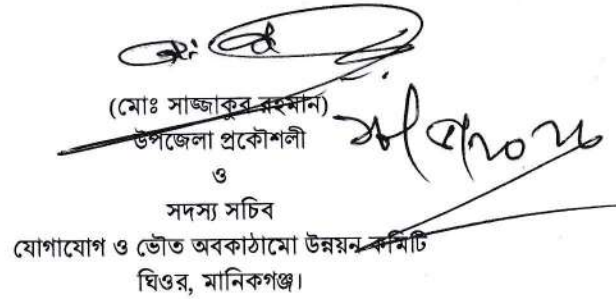 (মোঃ সাজ্জাকুর রহমান)
উপজেলা প্রকৌশলী
ও
সদস্য সচিব
যোগাযোগ ও ভৌত অবকাঠামো উন্নয়ন কমিটি
ঘিওর, মানিকগঞ্জ।